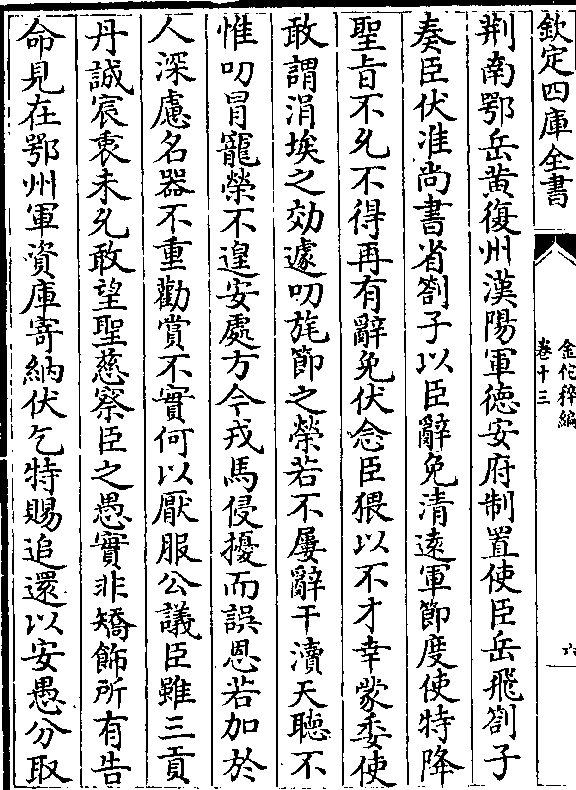 欽定四庫全書
金佗稡編
卷十三
六
荆南鄂岳黄復州漢陽軍徳安府制置使臣岳飛劄子
奏臣伏准尚書省劄子以臣辭免清逺軍節度使特降
聖㫖不允不得再有辭免伏念臣猥以不才幸蒙委使
敢謂涓埃之効遽叨旄節之榮若不屢辭干瀆天聴不
惟叨冒寵榮不遑安處方今戎馬侵擾而誤恩若加於
人深慮名器不重勸賞不實何以厭服公議臣雖三貢
丹誠宸衷未允敢望聖慈察臣之愚實非矯飾所有告
命見在鄂州軍資庫寄納伏乞特賜追還以安愚分取